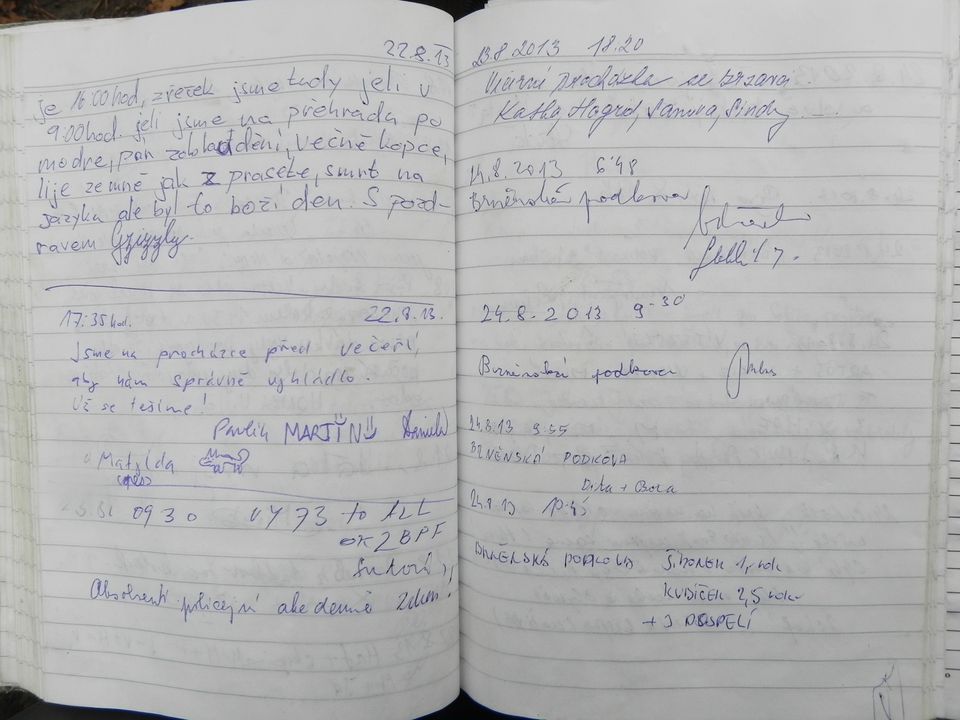 22.8.13
je 16:00 hod, zřetek jsme tudy jeli v
9:00 hod. jeli jsme na přehradu po
modré, pán zabloudění, večně kopce,
lije ze mně jak z prasete, smrt na
jazyku ale byl to boží den. S pozd-
ravem Grizzly.
17:35 hod. 22.8.13.
Jsme na procházce před večeří,
aby nám správně vyhládlo.
Už se těšíme!
Pavlík MARTIN Daniela
Matylda
(pes)
0930 to ALE
OK2BPF
Absolventi policejní akademie zdraví!
23.8.2013 18.20
procházka se
Katka, Hagrid,
24.8.2013 6:48
Brněnská podkova
24.8.2013 9-30
Brněnská podkova
24.8.13 9.55
BRNĚNSKÁ PODKOVA
Dita + Bora
24.8.13
BRNĚNSKÁ PODKOVA ŠIMONEK 1, rok
KUBÍČEK 2,5 roku
+ 3 DOSPĚLÍ